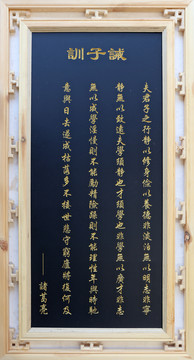 誡子訓
夫君子之行靜以修身儉以養德非淡泊無以明志非寧
靜無以致遠夫學須靜也才須學也非學無以廣才非志
無以成學淫慢則不能勵精險躁則不能理性年與時馳
意與日去遂成枯落多不接世悲守窮廬將復何及
諸葛亮